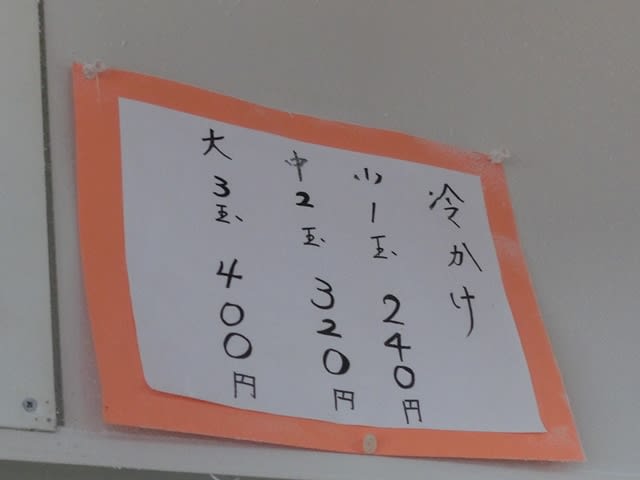 冷かけ
小1玉 240円
中2玉 320円
大3玉 400円